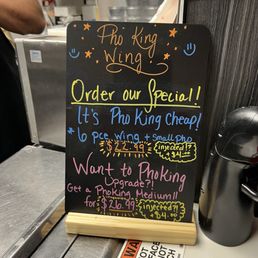 Pho King
Wing
Order our Special!!
It's Pho King Cheap!
* 6 pce wing + Small Pho
$22.99
injected!?
+ $4.00
Want to PhoKing
Upgrade?!
Get a PhoKing Medium!!
for $26.99
injected!?
+ $4.00